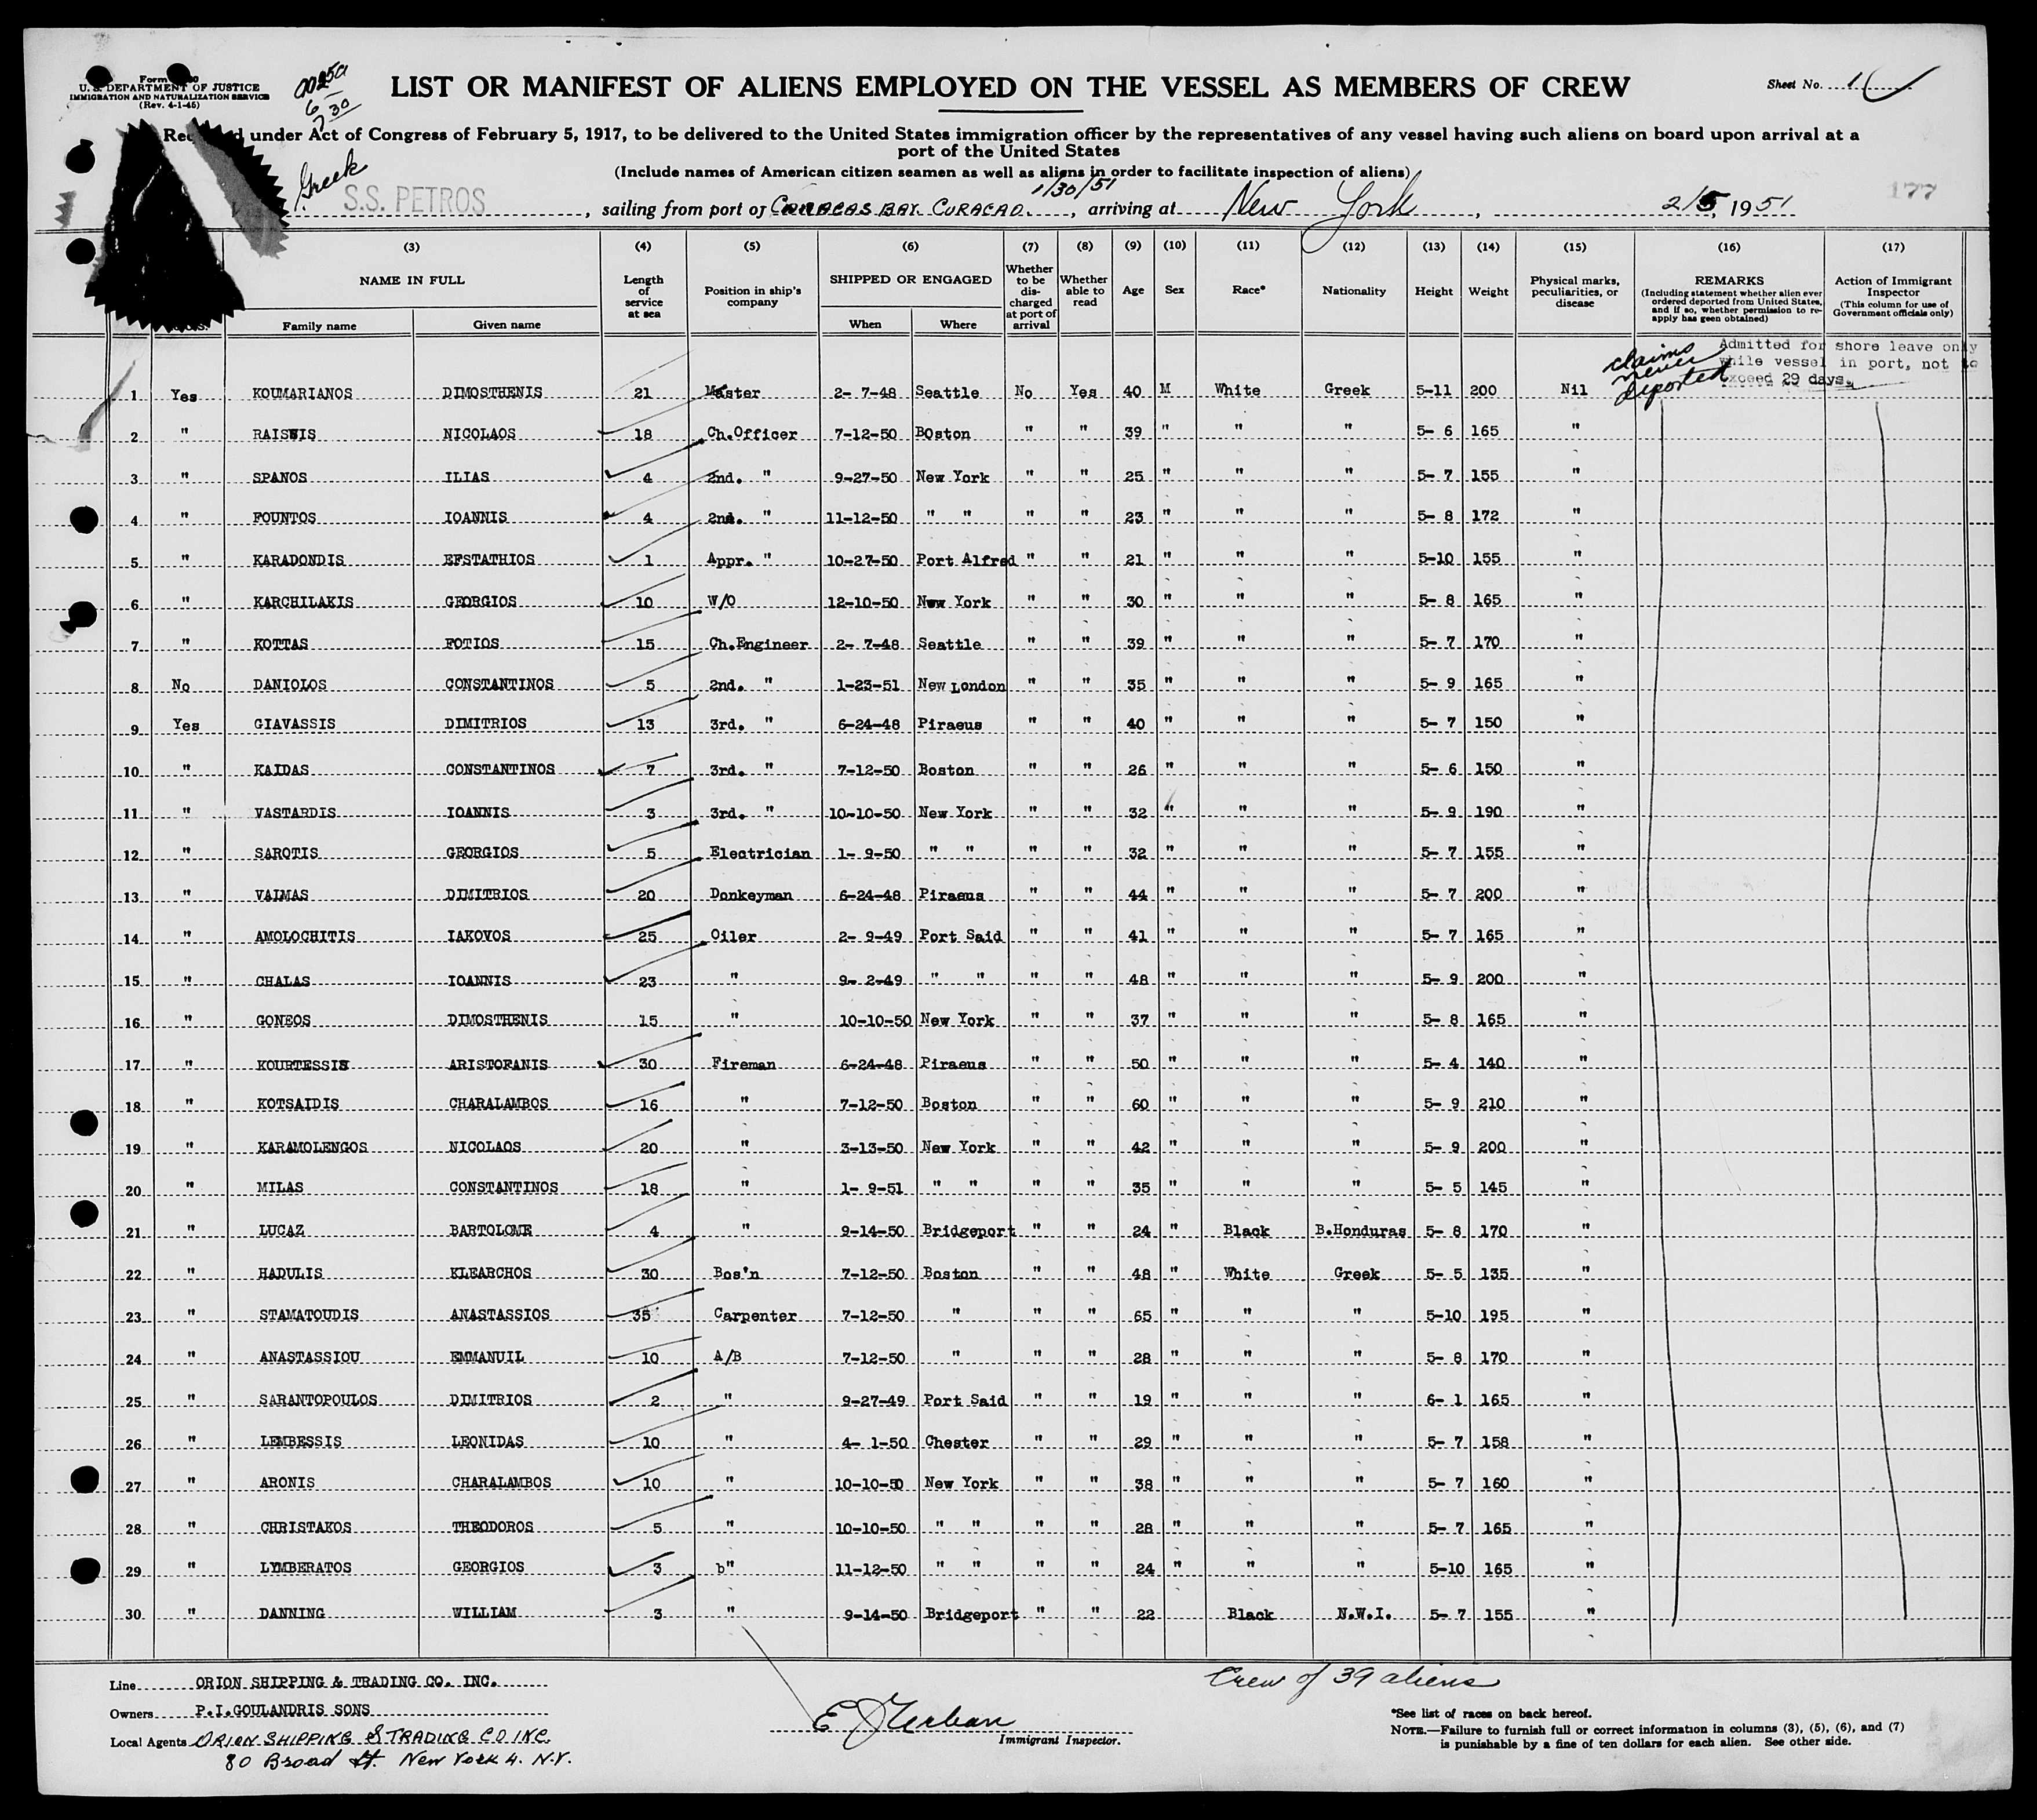 Form
U. S. DEPARTMENT OF JUSTICE
IMMIGRATION AND NATURALIZATION SERVICE
(Rev. 4-1-45)
LIST OR MANIFEST OF ALIENS EMPLOYED ON THE VESSEL AS MEMBERS OF CREW
Sheet No. 1
under Act of Congress of February 5, 1917, to be delivered to the United States immigration officer by the representatives of any vessel having such aliens on board upon arrival at a
port of the United States
(Include names of American citizen seamen as well as aliens in order to facilitate inspection of aliens)
Greek
1/30/51
177
S.S. PETROS, sailing from port of CARACAS BAY. CURACAO., arriving at New York, 2/5, 1951
(3) (4) (5) (6) (7) (8) (9) (10) (11) (12) (13) (14) (15) (16) (17)
NAME IN FULL Family name Given name
Length of service at sea
Position in ship's company
SHIPPED OR ENGAGED When Where
Whether to be discharged at port of arrival
Whether able to read
Age Sex Race* Nationality Height Weight
Physical marks, peculiarities, or disease
REMARKS (Including statement whether alien ever ordered deported from United States, and if so, whether permission to reapply has geen obtained)
Action of Immigrant Inspector (This column for use of Government officials only)
claims never deported
Admitted for shore leave only
while vessel in port, not to
exceed 29 days.
1 Yes KOUMARIANOS DIMOSTHENIS 21 Master 2- 7-48 Seattle No Yes 40 M White Greek 5-11 200 Nil
2 " RAISWIS NICOLAOS 18 Ch.Officer 7-12-50 BOston " " 39 " " " 5- 6 165 "
3 " SPANOS ILIAS 4 2nd. " 9-27-50 New York " " 25 " " " 5- 7 155 "
4 " FOUNTOS IOANNIS 4 2nd. " 11-12-50 " " " " 23 " " " 5- 8 172 "
5 " KARADONDIS EFSTATHIOS 1 Appr. " 10-27-50 Port Alfred " " 21 " " " 5-10 155 "
6 " KARCHILAKIS GEORGIOS 10 W/O 12-10-50 New York " " 30 " " " 5- 8 165 "
7 " KOTTAS FOTIOS 15 Ch.Engineer 2- 7-48 Seattle " " 39 " " " 5- 7 170 "
8 No DANIOLOS CONSTANTINOS 5 2nd. " 1-23-51 New London " " 35 " " " 5- 9 165 "
9 Yes GIAVASSIS DIMITRIOS 13 3rd. " 6-24-48 Piraeus " " 40 " " " 5- 7 150 "
10 " KAIDAS CONSTANTINOS 7 3rd. " 7-12-50 Boston " " 26 " " " 5- 6 150 "
11 " VASTARDIS IOANNIS 3 3rd. " 10-10-50 New York " " 32 " " " 5- 9 190 "
12 " SAROTIS GEORGIOS 5 Electrician 1- 9-50 " " " " 32 " " " 5- 7 155 "
13 " VAIMAS DIMITRIOS 20 Donkeyman 6-24-48 Piraeus " " 44 " " " 5- 7 200 "
14 " AMOLOCHITIS IAKOVOS 25 Oiler 2- 9-49 Port Said " " 41 " " " 5- 7 165 "
15 " CHALAS IOANNIS 23 " 9- 2-49 " " " " 48 " " " 5- 9 200 "
16 " GONEOS DIMOSTHENIS 15 " 10-10-50 New York " " 37 " " " 5- 8 165 "
17 " KOURTESSIS ARISTOFANIS 30 Fireman 6-24-48 Piraeus " " 50 " " " 5- 4 140 "
18 " KOTSAIDIS CHARALAMBOS 16 " 7-12-50 Boston " " 60 " " " 5- 9 210 "
19 " KARAMOLENGOS NICOLAOS 20 " 3-13-50 New York " " 42 " " " 5- 9 200 "
20 " MILAS CONSTANTINOS 18 " 1- 9-51 " " " " 35 " " " 5- 5 145 "
21 " LUCAZ BARTOLOME 4 " 9-14-50 Bridgeport " " 24 " Black B.Honduras 5- 8 170 "
22 " HADULIS KLEARCHOS 30 Bos'n 7-12-50 Boston " " 48 " White Greek 5- 5 135 "
23 " STAMATOUDIS ANASTASSIOS 35 Carpenter 7-12-50 " " " 65 " " " 5-10 195 "
24 " ANASTASSIOU EMMANUIL 10 A/B 7-12-50 " " " 28 " " " 5- 8 170 "
25 " SARANTOPOULOS DIMITRIOS 2 " 9-27-49 Port Said " " 19 " " " 6- 1 165 "
26 " LEMBESSIS LEONIDAS 10 " 4- 1-50 Chester " " 29 " " " 5- 7 158 "
27 " ARONIS CHARALAMBOS 10 " 10-10-50 New York " " 38 " " " 5- 7 160 "
28 " CHRISTAKOS THEODOROS 5 " 10-10-50 " " " " 28 " " " 5- 7 165 "
29 " LYMBERATOS GEORGIOS 3 b" 11-12-50 " " " " 24 " " " 5-10 165 "
30 " DANNING WILLIAM 3 " 9-14-50 Bridgeport " " 22 Black N.W.I. 5- 7 155 "
Line ORION SHIPPING & TRADING CO. INC.
Crew of 39 aliens
Owners P.I.GOULANDRIS SONS
Local Agents ORION SHIPPING & TRADING CO INC.
80 Broad St. New York 4. N.Y.
Immigrant Inspector.
*See list of races on back hereof.
NOTE.—Failure to furnish full or correct information in columns (3), (5), (6), and (7)
is punishable by a fine of ten dollars for each alien. See other side.